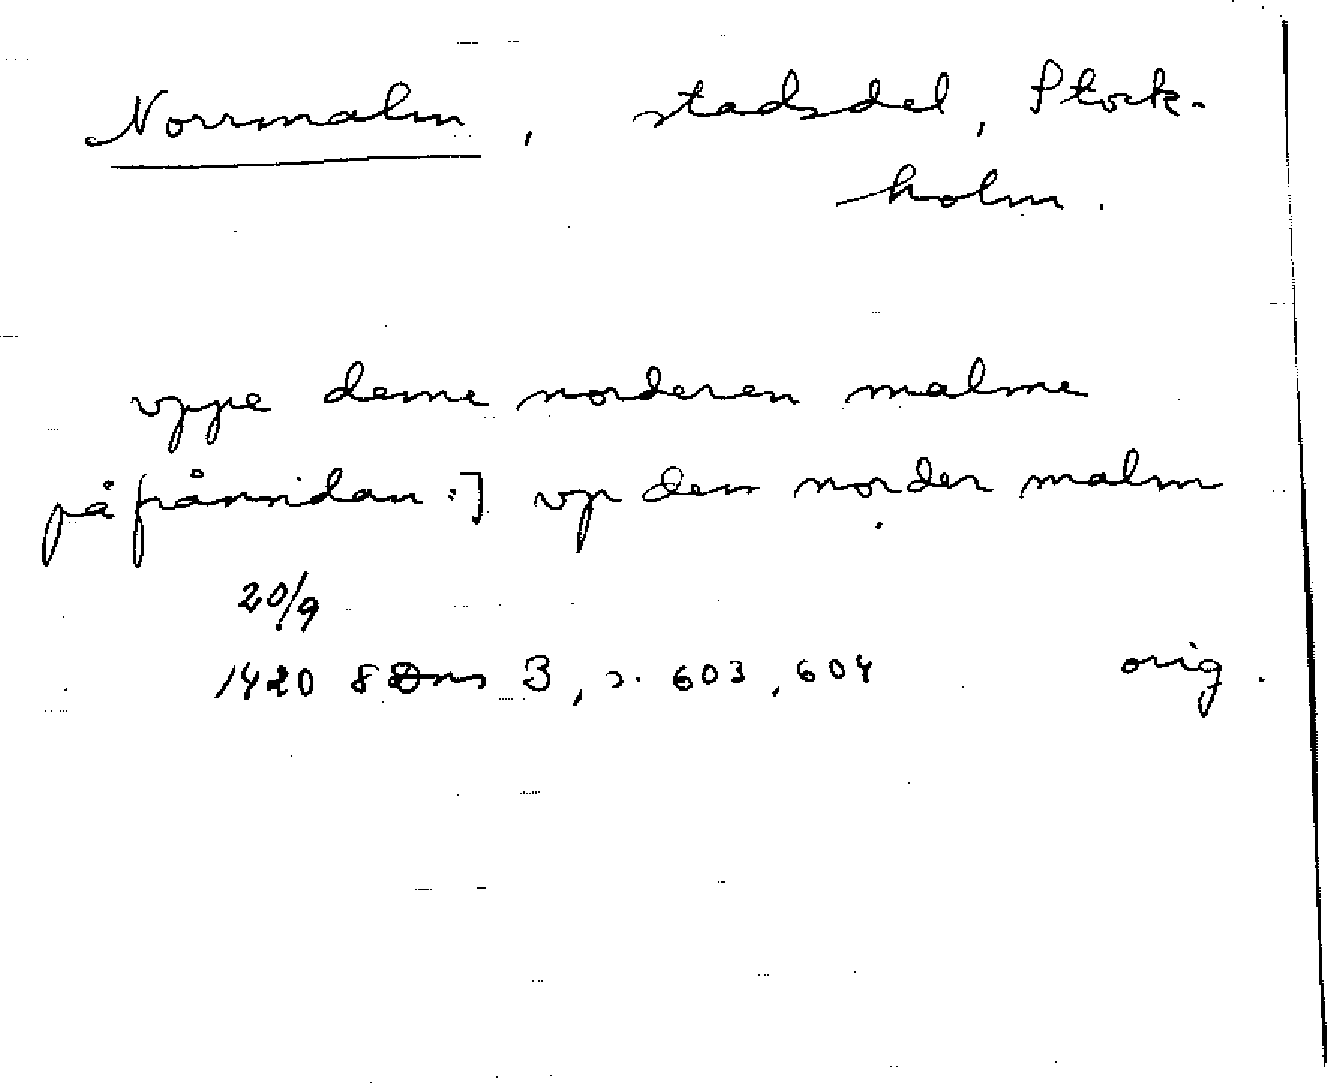 Norrmalm, stadsdel, Stock-
holm.
vppe deme norderen malme
på frånsidan :] vp den norder malm
20/9
1420 SDns 3, s. 603, 604 orig.